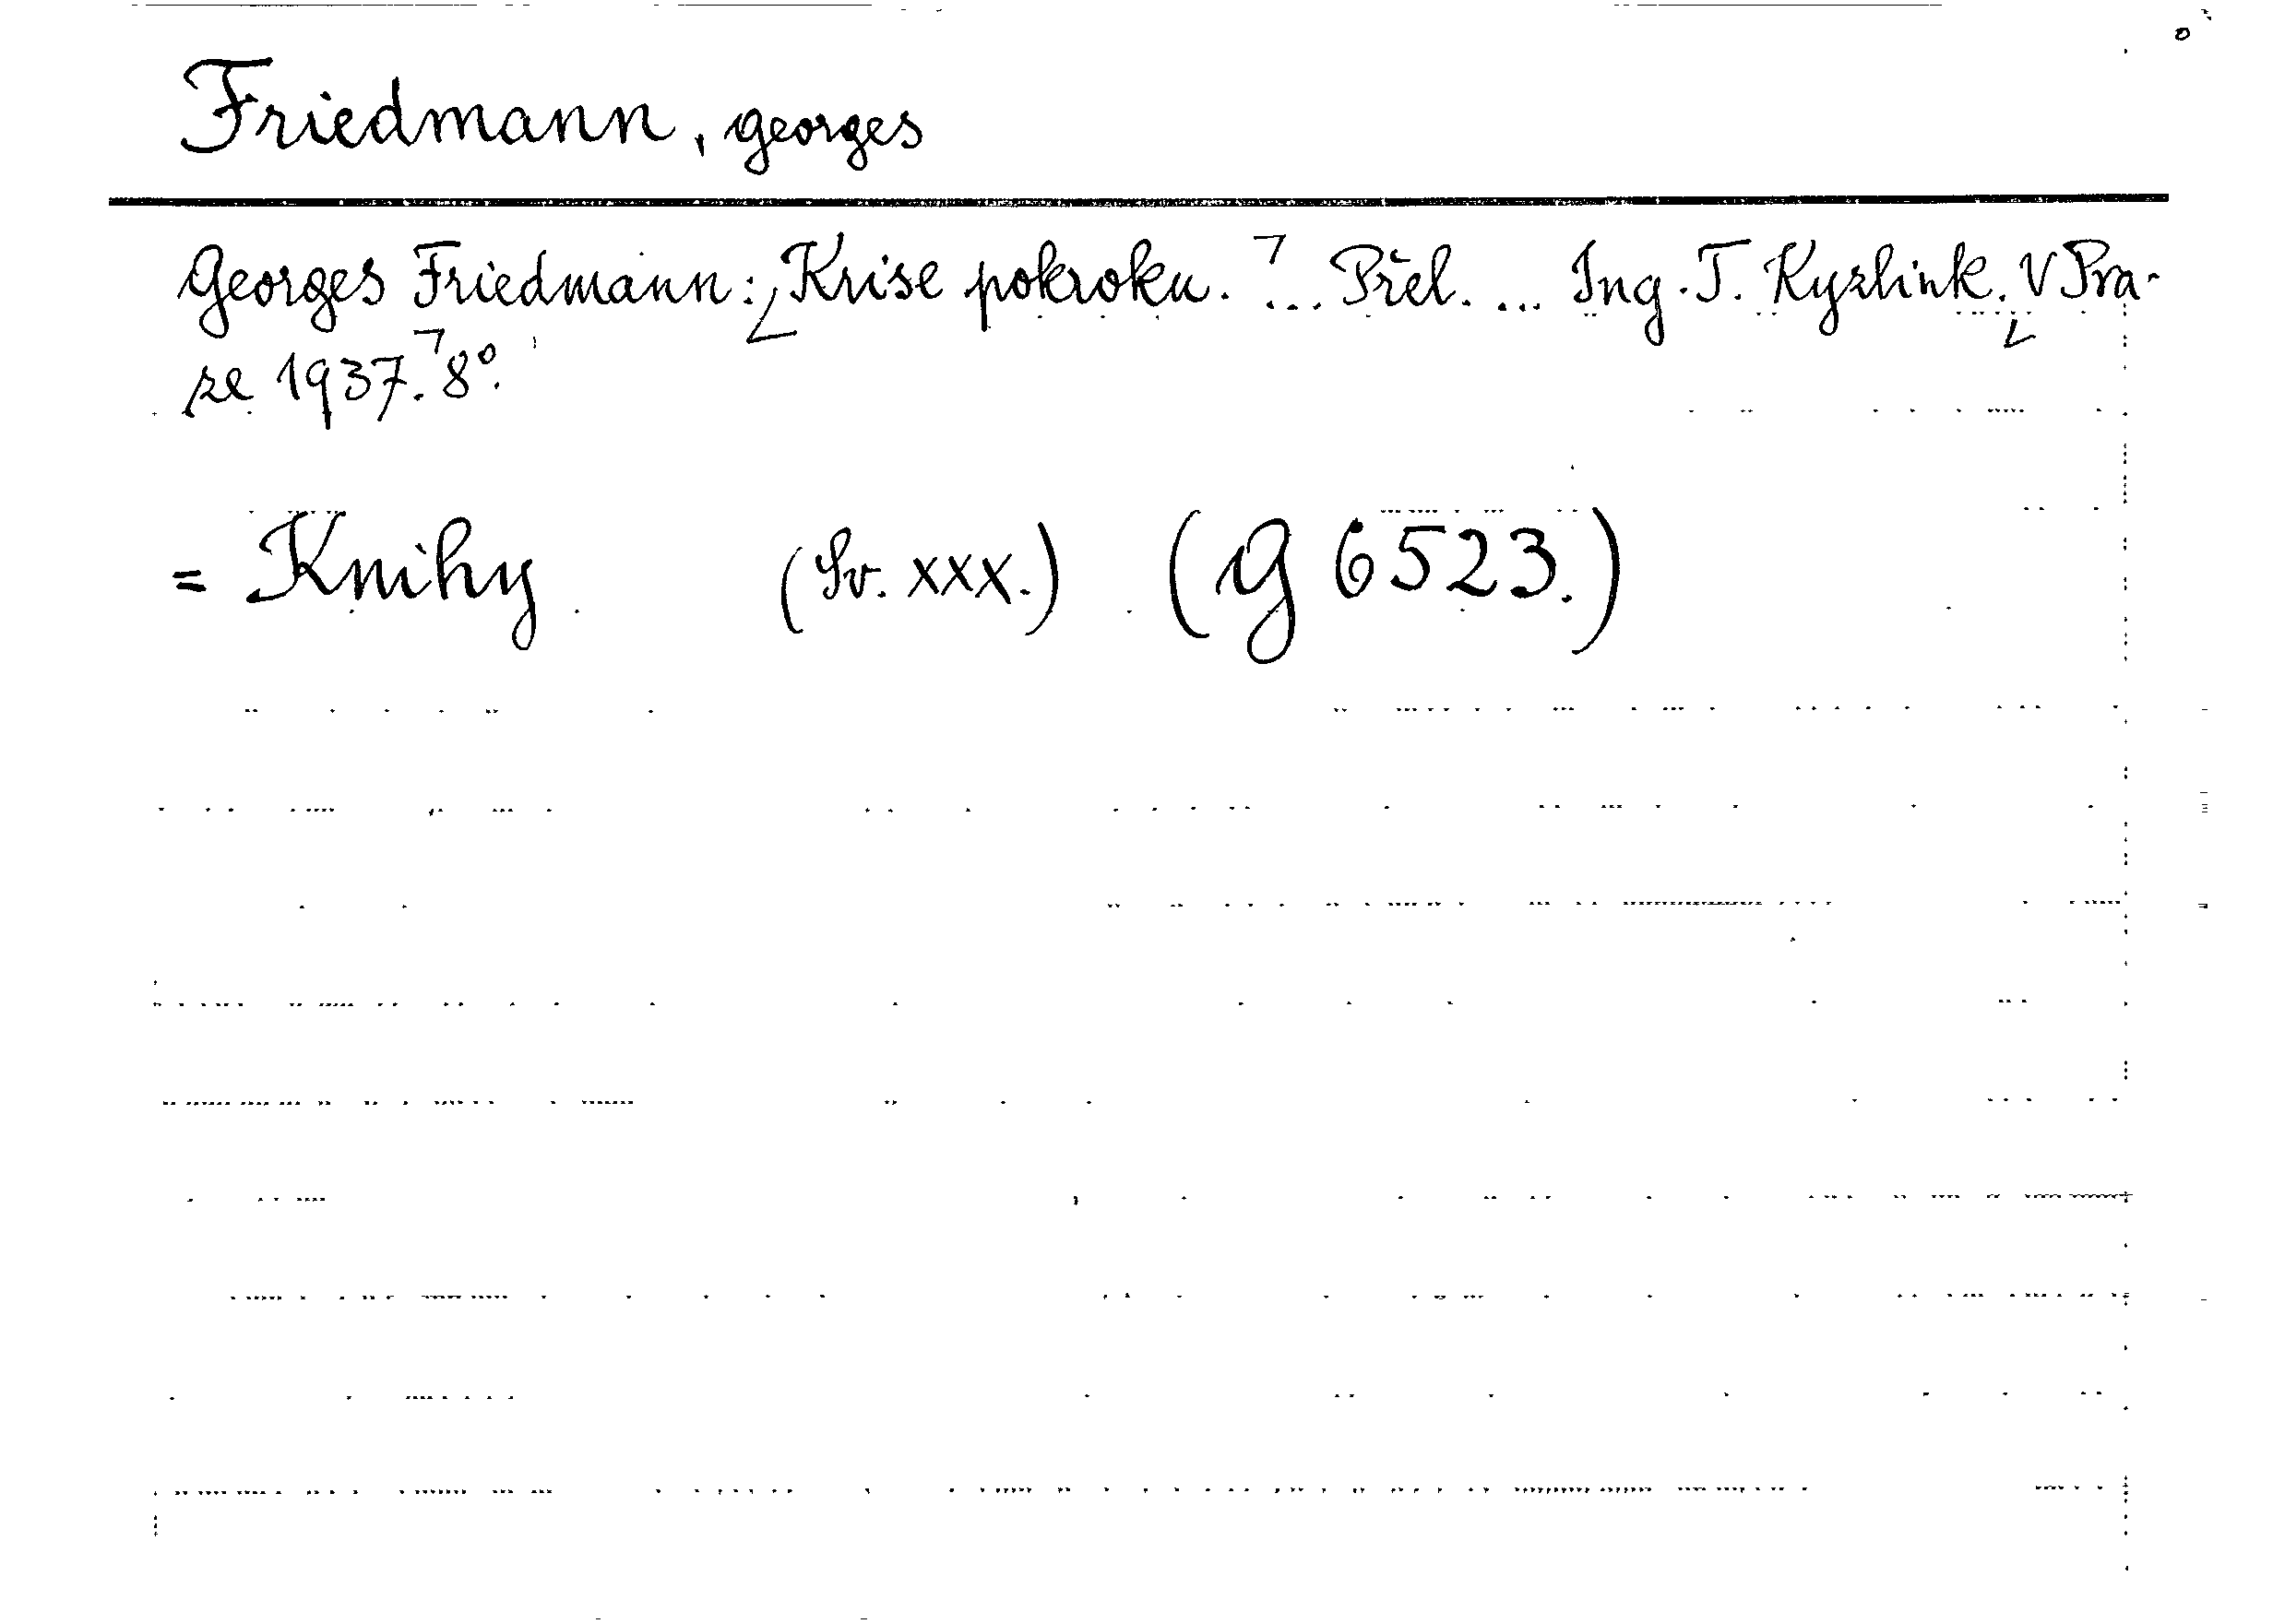 Friedmann, Georges
Georges Friedmann: Krise pokroku. ... Přel. ... Ing. T. Kyzlink. V Pra-
ze 1937. 8°.
= Knihy (Sv. XXX.) (G 6523.)